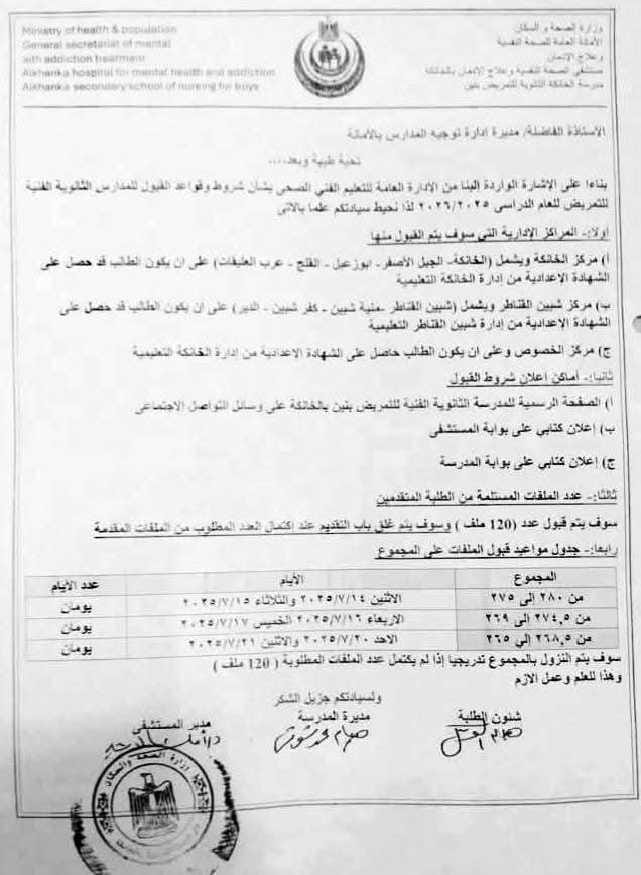 Ministry of health & population
General secretariat of mental
aith addiction treatment
Alkhanka hospital for mental health and addiction
Alkhanka secondary school of nursing for boys
وزارة الصحة و السكان
الأمانة العامة للصحة النفسية
وعلاج الإدمان
مستشفى الصحة النفسية وعلاج الادمان بالخانكة
مدرسة الخانكة الثانوية للتمريض بنين
الأستاذة الفاضلة/ مديرة إدارة توجيه المدارس بالأمانة
تحية طيبة وبعد....
بناءا على الإشارة الواردة إلينا من الإدارة العامة للتعليم الفني الصحى بشأن شروط وقواعد القبول للمدارس الثانوية الفنية
للتمريض للعام الدراسى ٢٠٢٦/٢٠٢٥ لذا نحيط سيادتكم علما بالاتى
اولا:- المراكز الإدارية التي سوف يتم القبول منها
أ) مركز الخانكة ويشمل (الخانكة- الجبل الأصفر- ابوزعبل - القلج - عرب العليقات) على ان يكون الطالب قد حصل على
الشهادة الإعدادية من إدارة الخانكة التعليمية
ب) مركز شبين القناطر ويشمل (شبين القناطر -منية شبين - كفر شبين - الدير) على ان يكون الطالب قد حصل على
الشهادة الإعدادية من إدارة شبين القناطر التعليمية
ج) مركز الخصوص وعلى ان يكون الطالب حاصل على الشهادة الاعدادية من إدارة الخانكة التعليمية
ثانيا:- أماكن إعلان شروط القبول
ا) الصفحة الرسمية للمدرسة الثانوية الفنية للتمريض بنين بالخانكة على وسائل التواصل الاجتماعى
ب) إعلان كتابي على بوابة المستشفى
ج) إعلان كتابي على بوابة المدرسة
ثالثا:- عدد الملفات المستلمة من الطلبة المتقدمين
سوف يتم قبول عدد (120 ملف ) وسوف يتم غلق باب التقديم عند إكتمال العدد المطلوب من الملفات المقدمة
رابعا:- جدول مواعيد قبول الملفات على المجموع
المجموع الأيام عدد الأيام
من ٢٨٠ إلى ٢٧٥ الاثنين ٢٠٢٥/٧/١٤ والثلاثاء ٢٠٢٥/٧/١٥ يومان
من ٢٧٤,٥ إلى ٢٦٩ الاربعاء ٢٠٢٥/٧/١٦ الخميس ٢٠٢٥/٧/١٧ يومان
من ٢٦٨,٥ إلى ٢٦٥ الاحد ٢٠٢٥/٧/٢٠ والاثنين ٢٠٢٥/٧/٢١ يومان
سوف يتم النزول بالمجموع تدريجيا إذا لم يكتمل عدد الملفات المطلوبة ( 120 ملف )
وهذا للعلم وعمل الازم
ولسيادتكم جزيل الشكر
شئون الطلبة مديرة المدرسة مدير المستشفى
وزارة الصحة والسكان